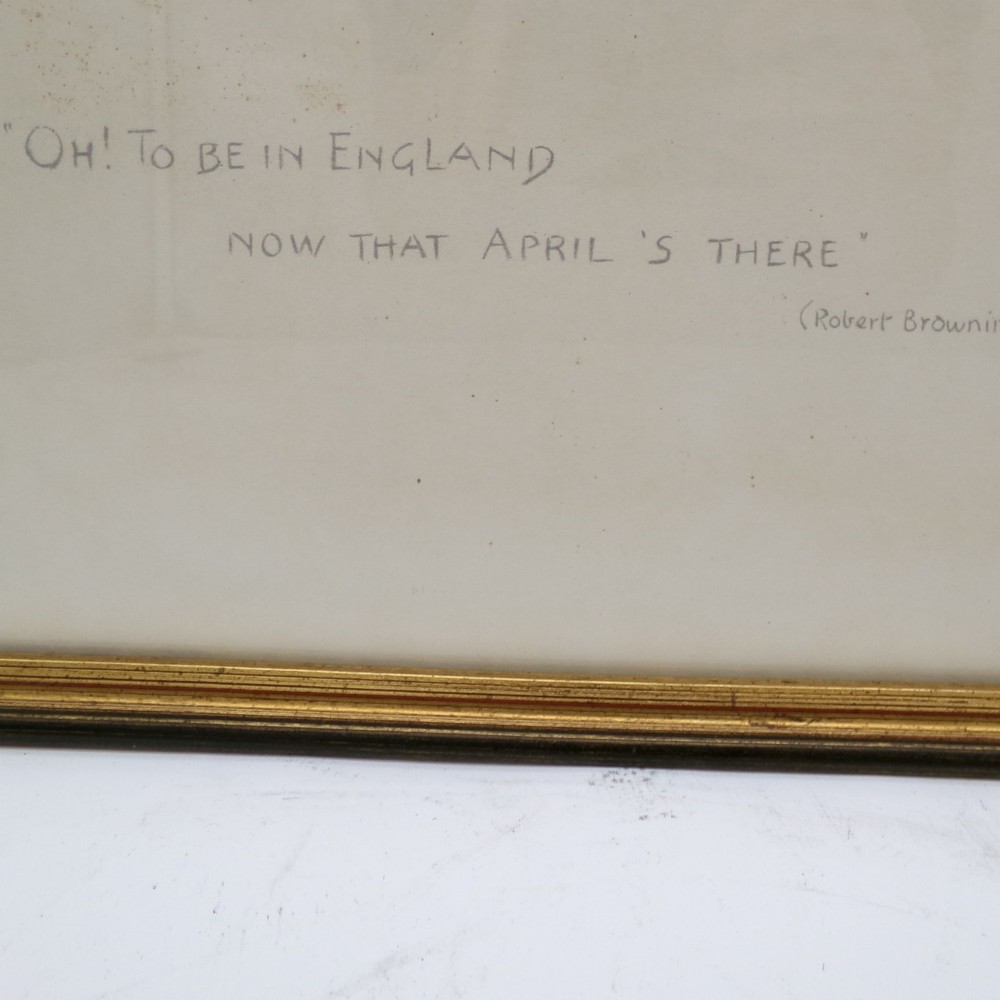 "OH! TO BE IN ENGLAND
NOW THAT APRIL 'S THERE"
(Robert Brownin